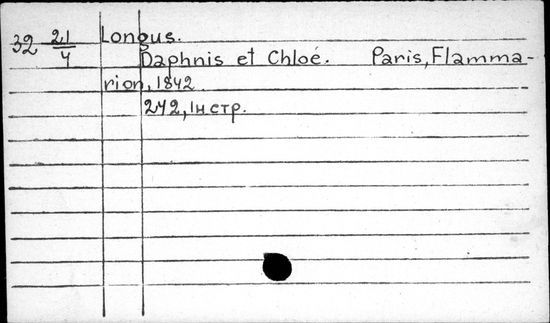 32 21/4 Longus.
Daphnis et Chloé. Paris, Flamma-
rion, 1842
242, Iн стр.